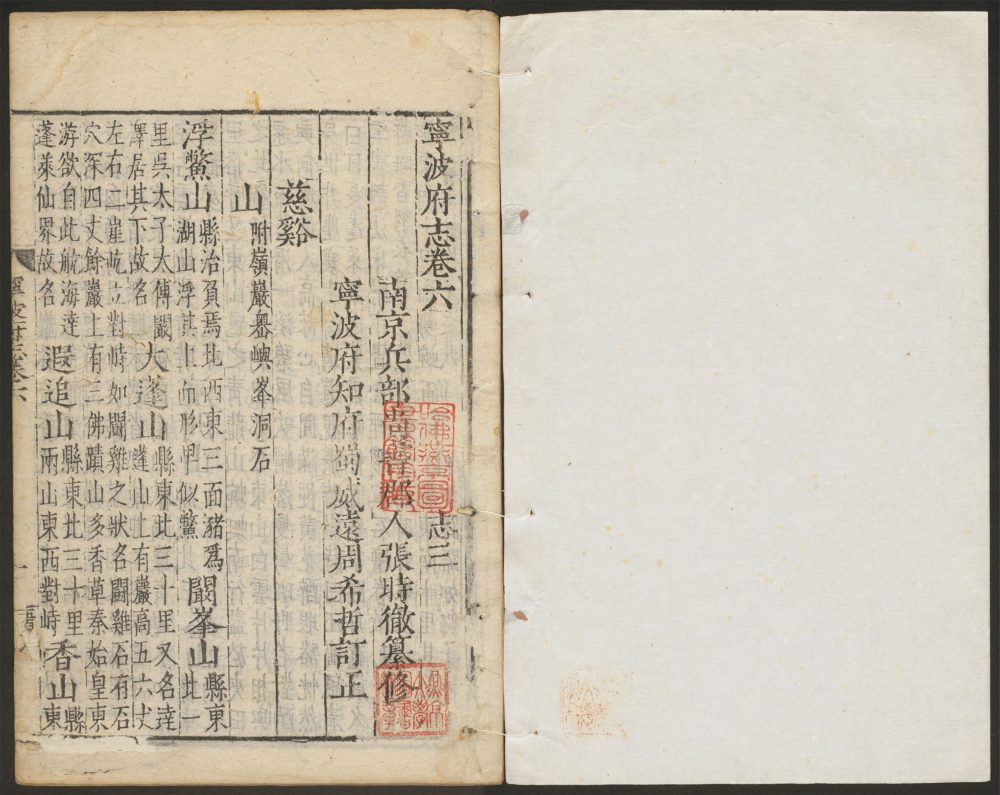 寧波府志卷六 志三
南京兵部尚書郡人張時徹纂修
寧波府知府蜀威遠周希哲訂正
慈谿
山 附嶺巖嶴嶼峯洞石
浮鱉山 縣治負焉北西東三面瀦爲
湖山浮其上而形里似鱉 闞峯山 縣東
北一里吳太子太傅闞
澤居其下故名 大蓬山 縣東北三十里又名達
蓬山上有巖高五六丈
左右二崖屹立對峙如鬬雞之狀名鬬雞石有石
穴深四丈餘巖上有三佛蹟山多香草秦始皇東
游欲自此航海達
蓬萊仙界故名 遐追山 縣東北三十里
兩山東西對峙 香山 縣
東
寧波府志卷六
一